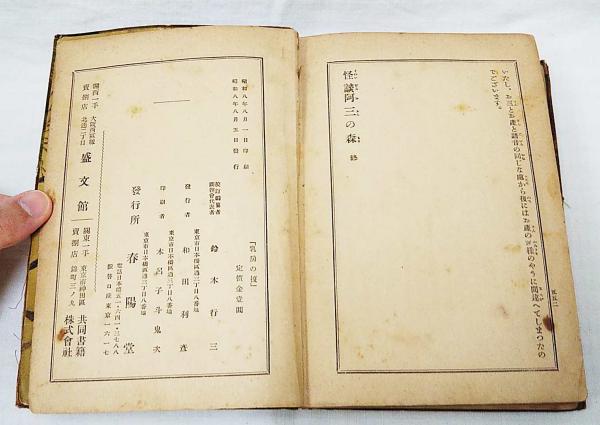 いたし、お三とお產と語音の同じな處から後にはお產の樣のやうに間違へてしまつたの
でございます。
怪談阿三の森 終
五五二
昭和八年八月一日印刷
昭和八年八月五日發行
『乳房の榎』
定價金壹圓
鈴木行三
東京市日本橋區通三丁目八番地
發行者 和田利彥
東京市日本橋區通三丁目八番地
印刷者 木呂子斗鬼次
東京市日本橋區通三丁目八番地
發行所 春陽堂
電話日本橋五一・六四一・三七八八
振替口座東京一六一七
關西一手
賣捌店
盛文館
關東一手
賣捌店
東京市神田區
錦町三ノ九
共同書籍
株式會社